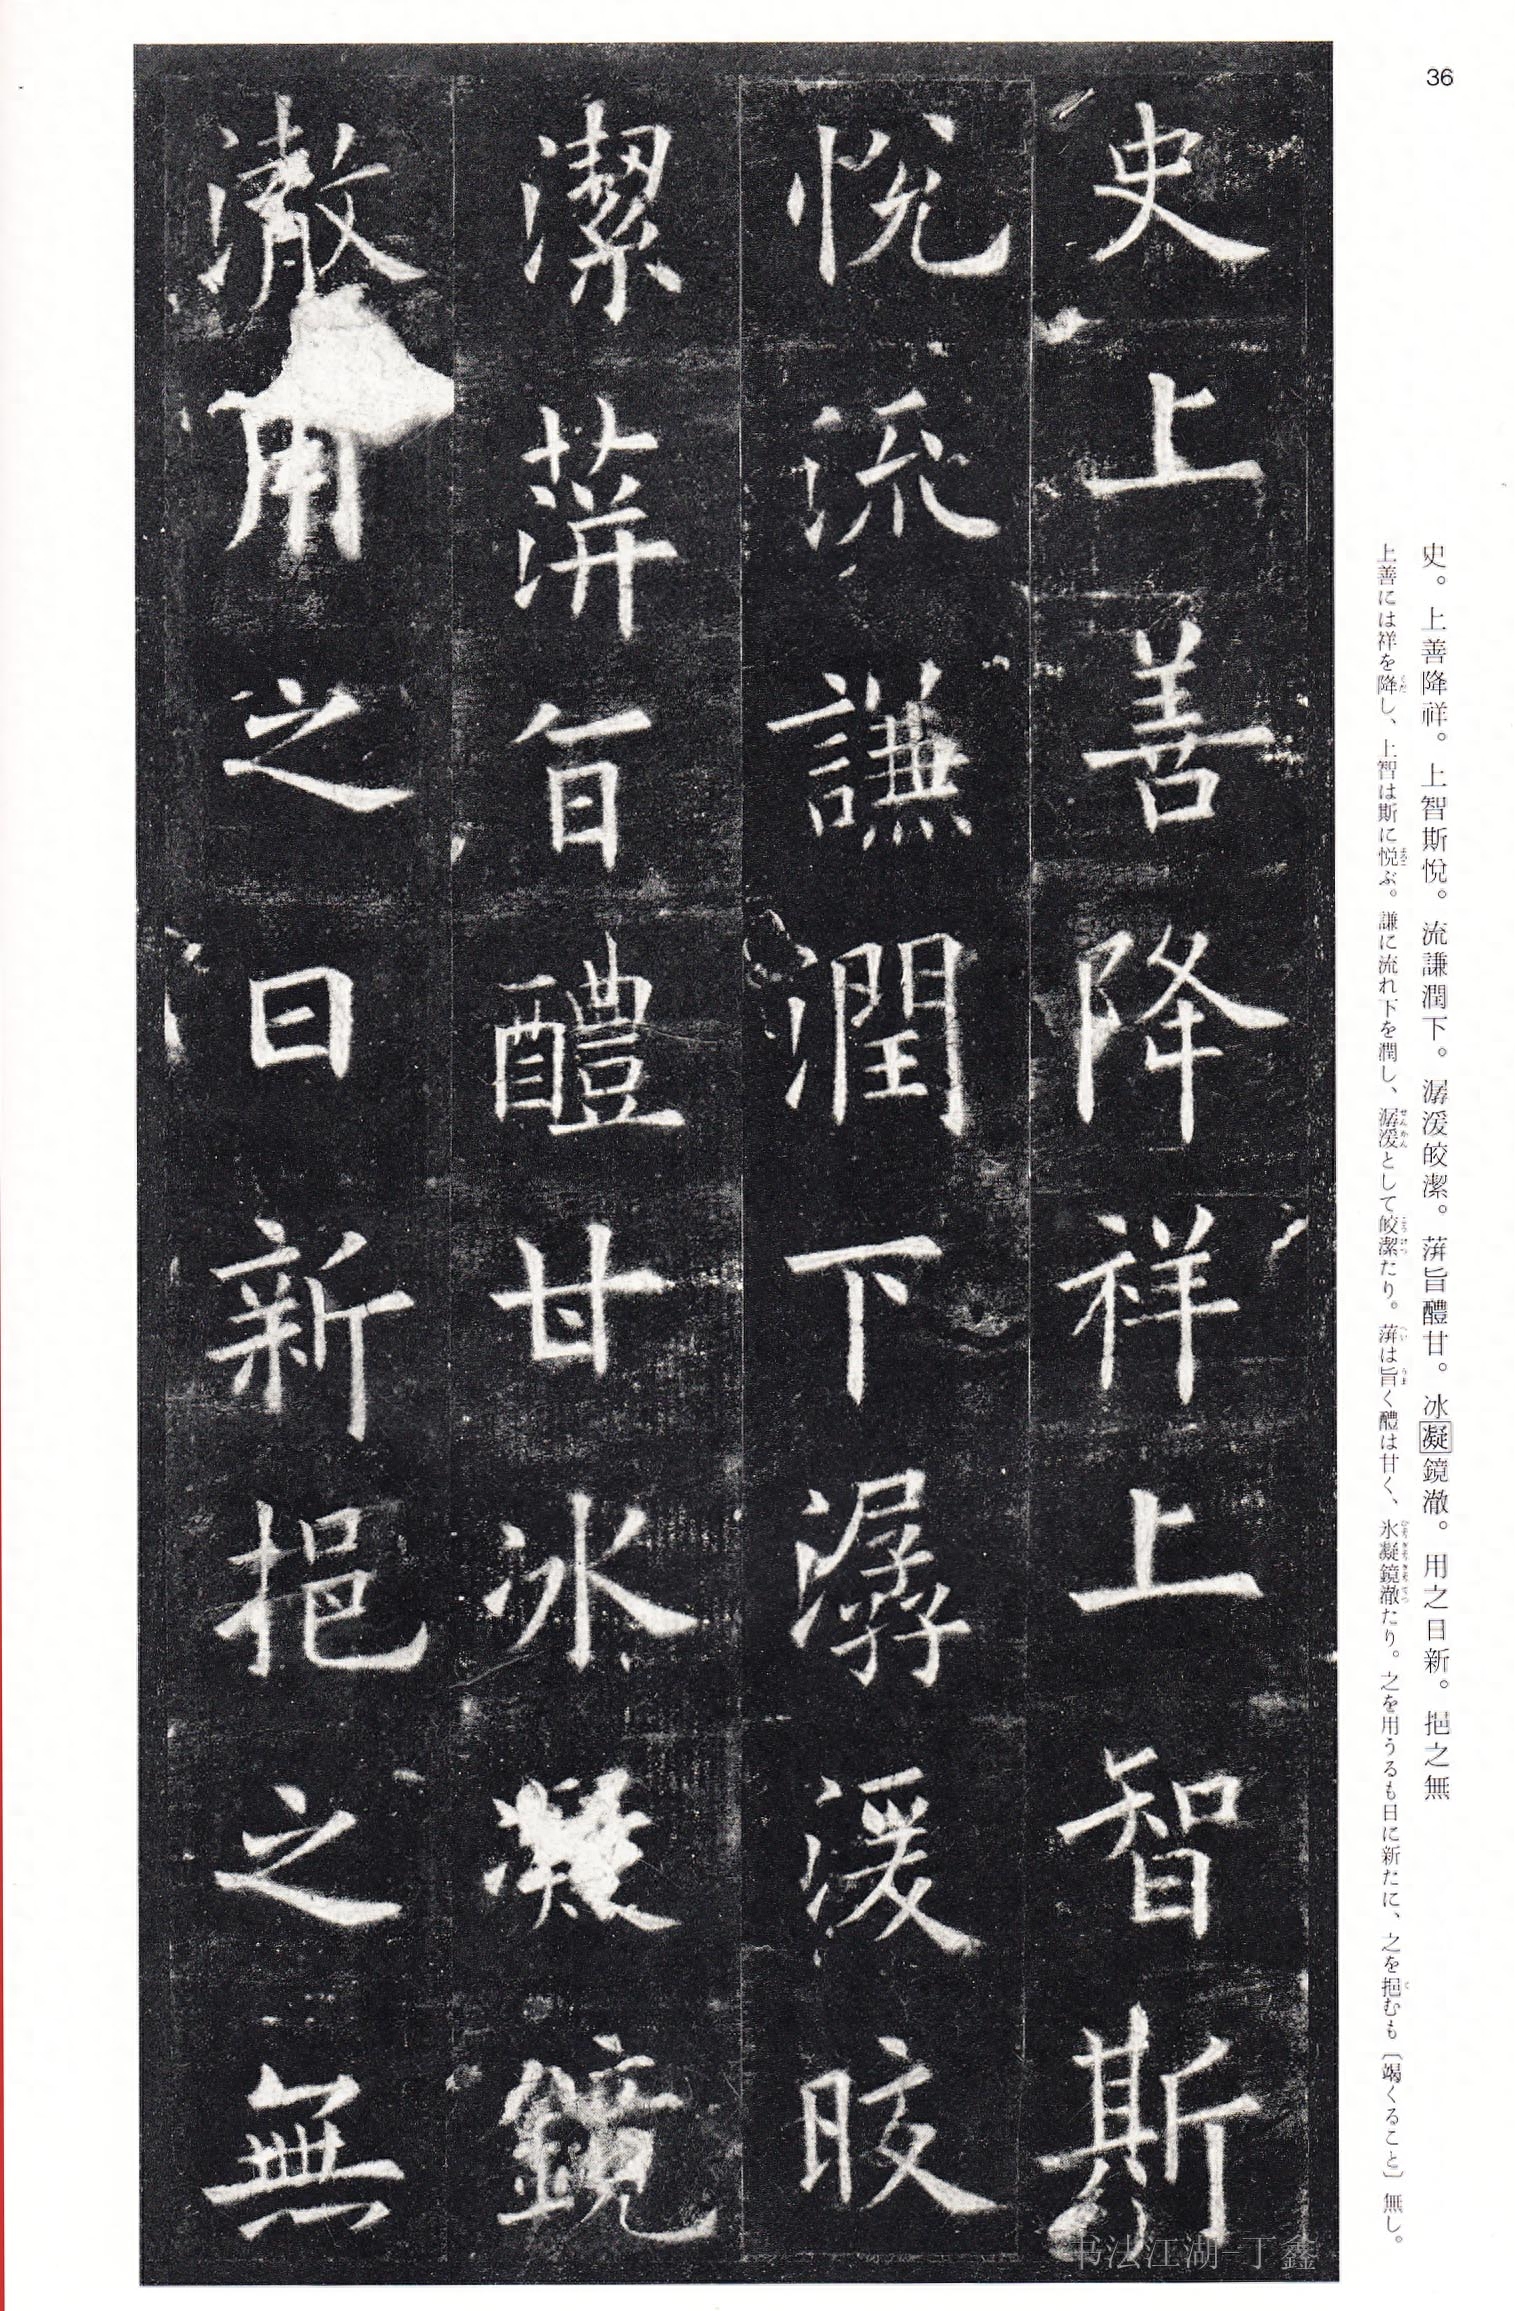 36
史。上善降祥。上智斯悅。流謙潤下。潺湲皎潔。蓱旨醴甘。冰凝鏡澈。用之日新。挹之無
上善には祥を降し、上智は斯に悦ぶ。謙に流れ下を潤し、潺湲として皎潔たり。蓱は旨く醴は甘く、氷凝鏡澈たり。之を用うるも日に新たに、之を挹むも〔竭くること〕無し。
史上善降祥上智斯
悅流謙潤下潺湲皎
潔蓱旨醴甘冰凝鏡
澈用之日新挹之無
书法江湖-丁鑫